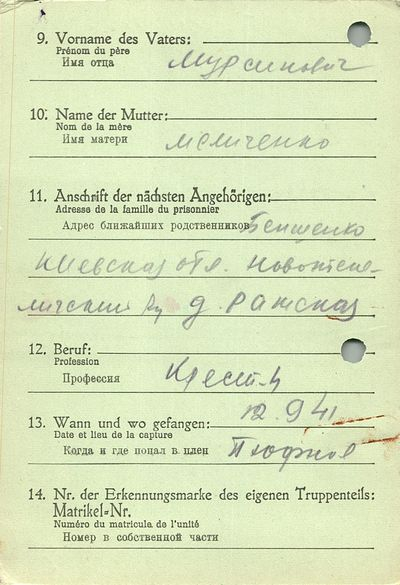 9. Vorname des Vaters:
Prénom du père
Имя отца Мурсинович
10. Name der Mutter:
Nom de la mère
Имя матери Меличенко
11. Anschrift der nächsten Angehörigen:
Adresse de la famille du prisonnier
Адрес ближайших родственников
Киевская обл.
д.
12. Beruf:
Profession
Профессия Крест-н
13. Wann und wo gefangen: 12.9 41
Date et lieu de la capture
Когда и где попал в плен
14. Nr. der Erkennungsmarke des eigenen Truppenteils:
Matrikel-Nr.
Numéro du matricule de l'unité
Номер в собственной части